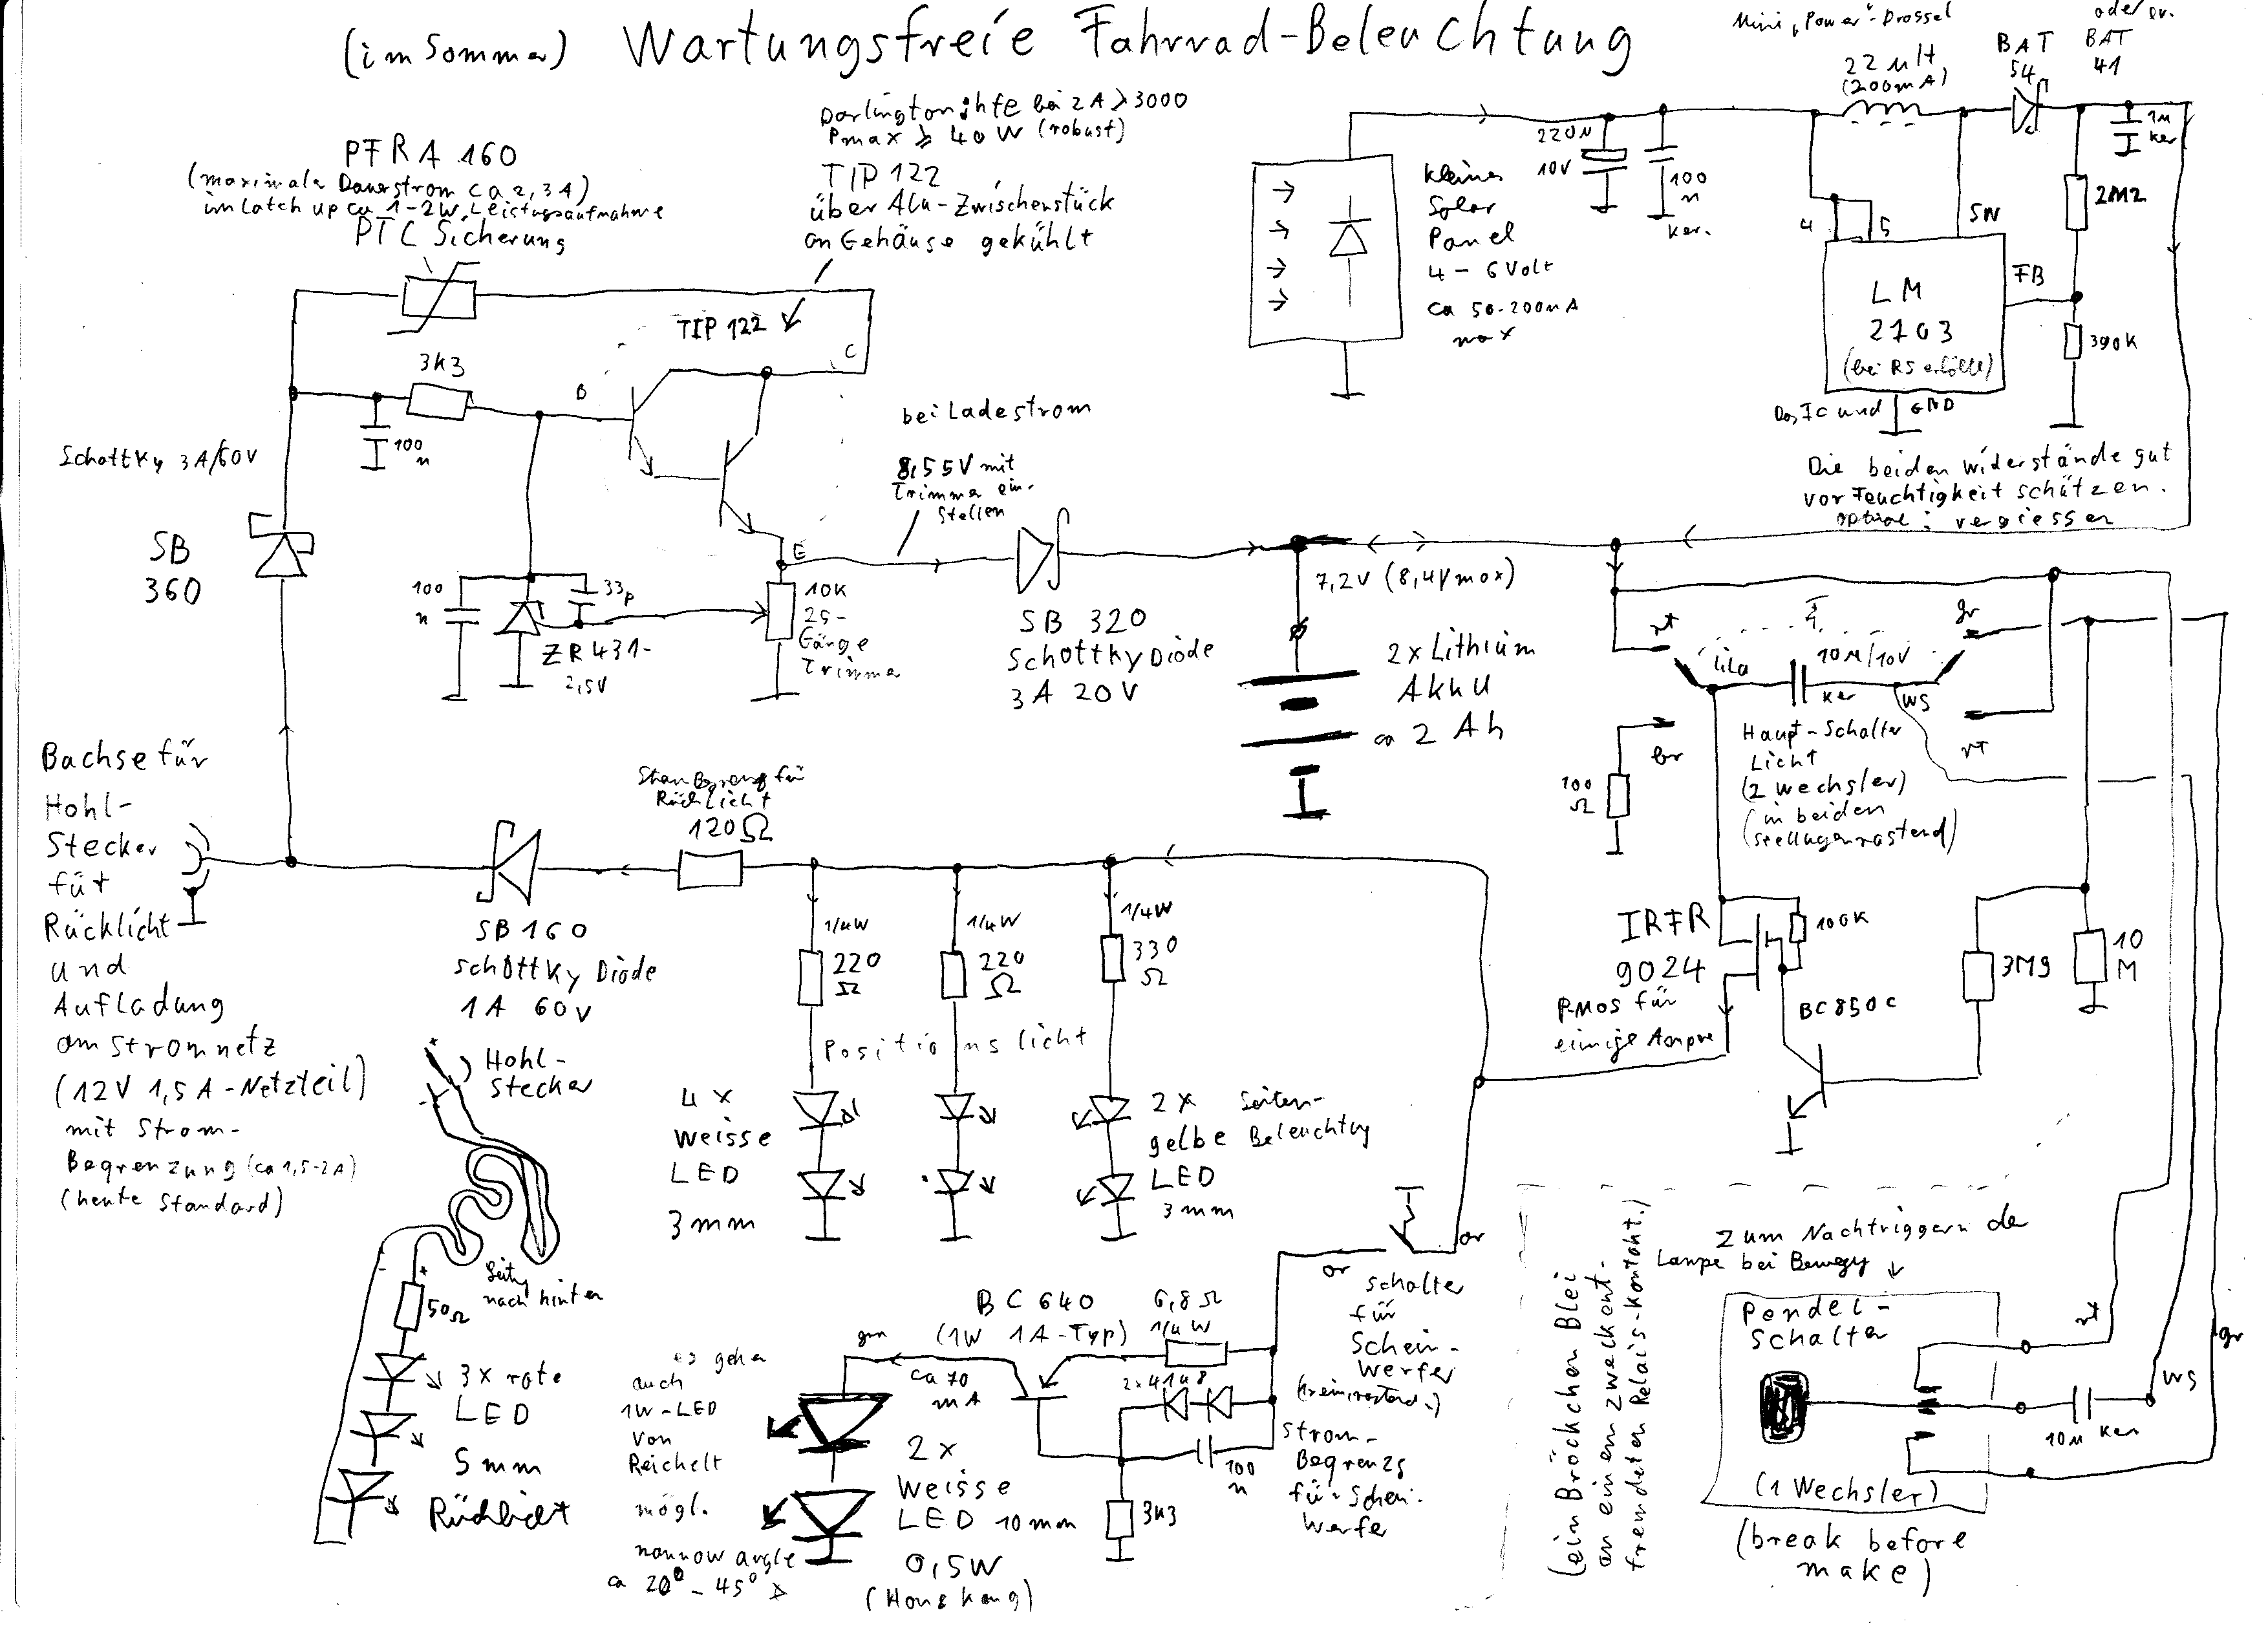 (im Sommer) Wartungsfreie Fahrrad-Beleuchtung
Mini „Power"-Drossel
22µH
(200mA)
BAT
54
oder ev.
BAT
41
PFRA 160
(maximale Dauerstrom ca 2,3A)
im Latch up ca 1-2W Leistungsaufnahme
PTC Sicherung
Darlington: hfe bei 2A > 3000
Pmax ≥ 40W (robust)
TIP 122
über Alu-Zwischenstück
an Gehäuse gekühlt
TIP 122
C
3k3
B
100
n
Schottky 3A/60V
SB
360
100
n
33p
ZR431-
2,5V
E
10K
25-
Gänge
Trimmer
bei Ladestrom
8,55V mit
Trimmer ein-
stellen
SB 320
Schottky Diode
3A 20V
7,2V (8,4Vmax)
2x Lithium
Akku
ca 2 Ah
220µ
10V
100
n
ker.
kleines
Solar
Panel
4 - 6 Volt
ca 50-200mA
max
1µ
ker
2M2
4
5
SW
FB
LM
2703
(bei RS erhältl)
390K
GND
Das IC und
Die beiden Widerstände gut
vor Feuchtigkeit schützen.
optimal: vergiessen
rt
lila
10µ/10V
ker
gr
ws
rt
br
100
Ω
Haupt-Schalter
Licht
(2 Wechsler)
(in beiden
Stellungen rastend)
IRFR
9024
P-MOS für
einige Ampere
100K
BC850C
3M9
10
M
Bachse für
Hohl-
Stecker
für
Rücklicht
und
Aufladung
am Stromnetz
(12V 1,5A-Netzteil)
mit Strom-
Begrenzung (ca 1,5-2A)
(heute Standard)
Rücklicht
120Ω
SB160
Schottky Diode
1A 60V
1/4W
220
Ω
1/4W
220
Ω
1/4W
330
Ω
Positionslicht
4 x
Weisse
LED
3mm
2x Seiten-
gelbe Beleuchtung
LED
3mm
Hohl-
stecker
+
-
+
-
nach hinten
50Ω
3x rote
LED
5mm
Rücklicht
or
or
Schalter
für
Schein-
werfer
BC640
(1W 1A-Typ)
6,8Ω
1/4W
grn
ca 70
mA
2x4148
100
n
3k3
Strom-
Begrenzg
für Schein-
werfer
es gehen
auch
1W-LED
von
Reichelt
mögl.
narrow angle
ca 20° - 45°
2x
Weisse
LED 10mm
0,5W
(Honkong)
Zum Nachtriggern der
Lampe bei Bewegg
Pendel-
Schalter
(1 Wechsler)
(break before
make)
rt
ws
gr
10µ ker
(ein Bröckchen Blei
an einem zweckent-
fremdeten Relais-Kontakt.)